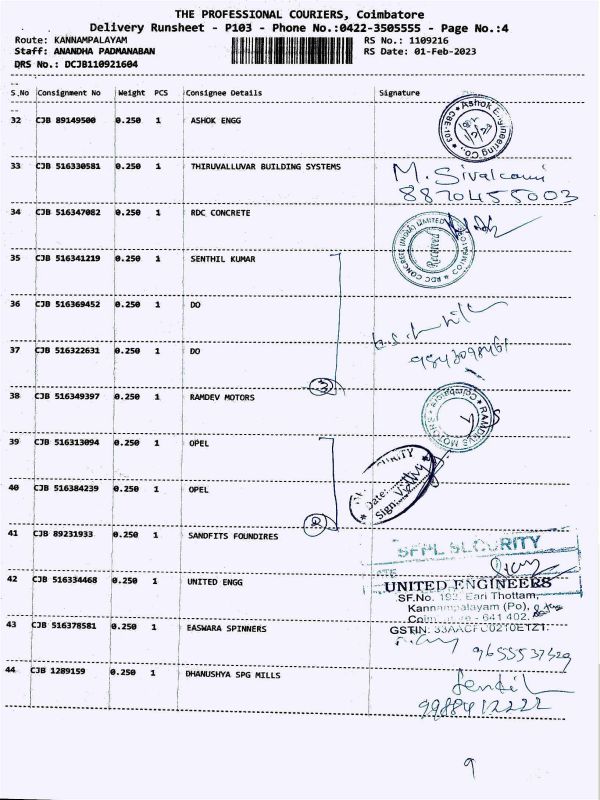 THE PROFESSIONAL COURIERS, Coimbatore
Delivery Runsheet - P103 - Phone No.:0422-3505555 - Page No.:4
Route: KANNAMPALAYAM RS No.: 1109216
Staff: ANANDHA PADMANABAN RS Date: 01-Feb-2023
DRS No.: DCJB110921604
S.No Consignment No Weight PCS Consignee Details Signature
32 CJB 89149500 0.250 1 ASHOK ENGG
Ashok Engineering Co.,
33 CJB 516330581 0.250 1 THIRUVALLUVAR BUILDING SYSTEMS
M. Sivalcami
8870455003
34 CJB 516347082 0.250 1 RDC CONCRETE
RDC CONCRETE (INDIA) LIMITED
35 CJB 516341219 0.250 1 SENTHIL KUMAR
36 CJB 516369452 0.250 1 DO
37 CJB 516322631 0.250 1 DO
3
38 CJB 516349397 0.250 1 RAMDEV MOTORS
39 CJB 516313094 0.250 1 OPEL
Date:
Sign:
40 CJB 516384239 0.250 1 OPEL
2
41 CJB 89231933 0.250 1 SANDFITS FOUNDIRES
SFPL SECURITY
42 CJB 516334468 0.250 1 UNITED ENGG
UNITED ENGINEERS
SF.No. Eari Thottam,
Kannampalayam (Po),
641 402.
43 CJB 516378581 0.250 1 EASWARA SPINNERS
GSTIN:
44 CJB 1289159 0.250 1 DHANUSHYA SPG MILLS
9